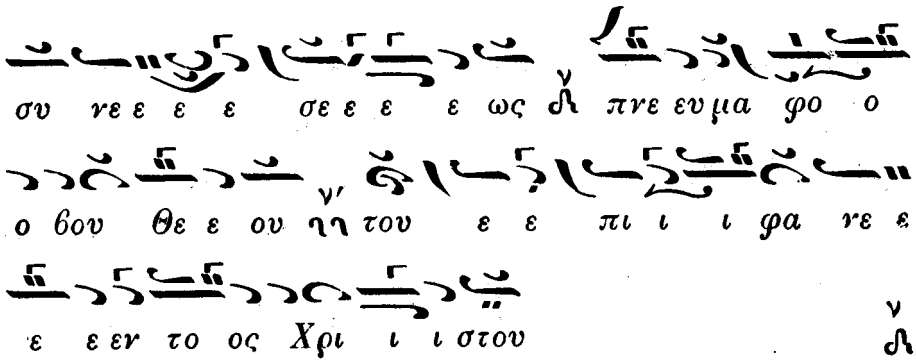 συ νε ε ε ε σε ε ε ε ως πνε ευ μα φο ο
ο βου Θε ε ου του ε ε πι ι ι φα νε ε
ε ε εν το ος Χρι ι ι στου